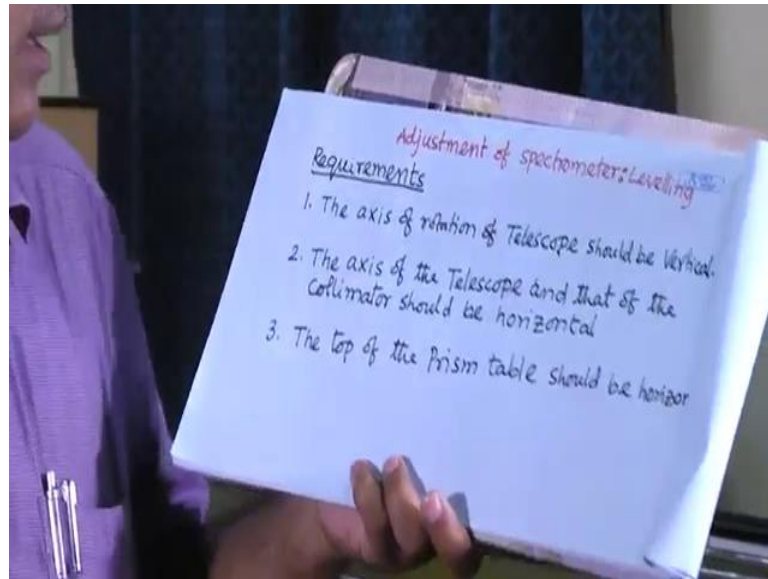 Adjustment of spectrometer: Levelling
Requirements
1. The axis of rotation of Telescope should be Vertical.
2. The axis of the Telescope and that of the
Collimator should be horizontal
3. The top of the Prism table should be horizon